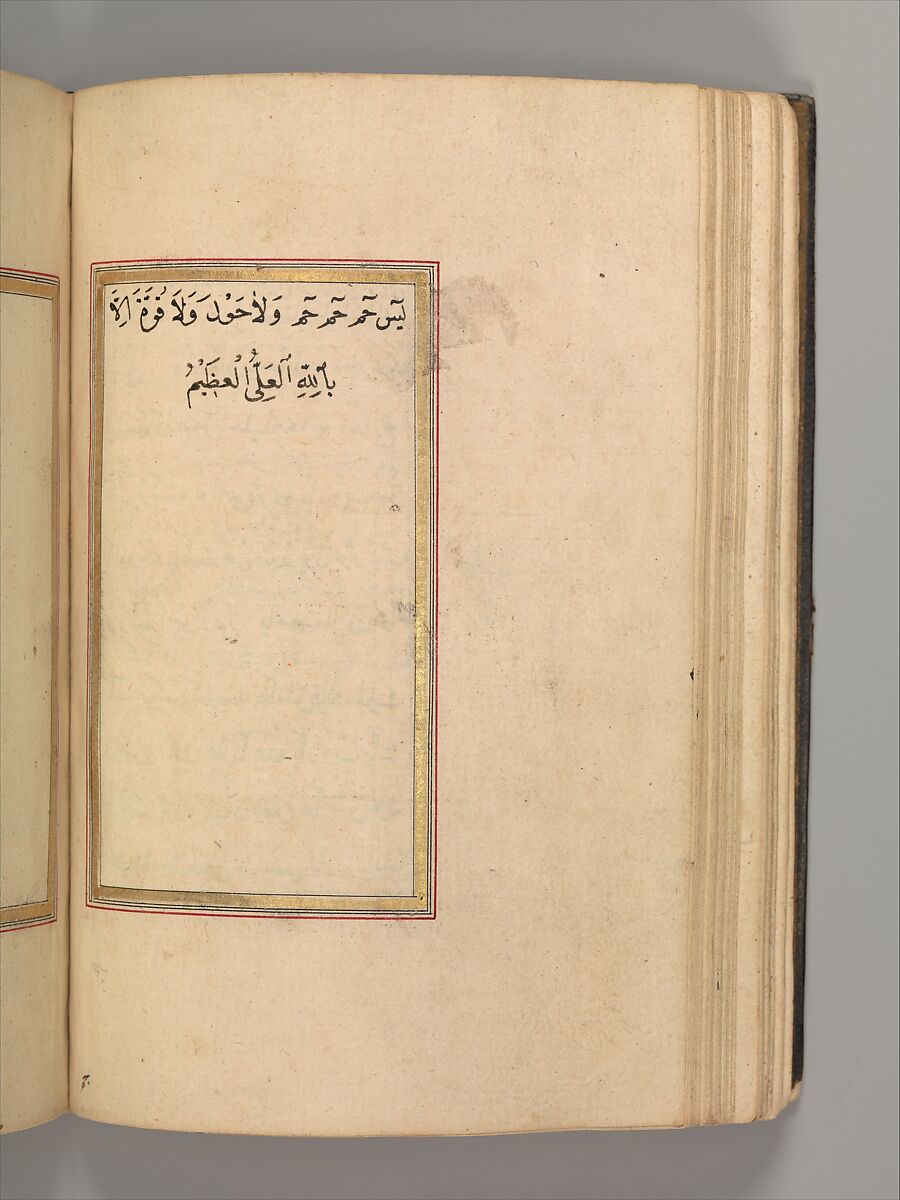 يٰسٓ حٓمٓ حٓمٓ حٓمٓ وَلَا حَوْلَ وَلَا قُوَّةَ اِلَّا
بِاللّٰهِ الْعَلِيِّ الْعَظِيْمِ